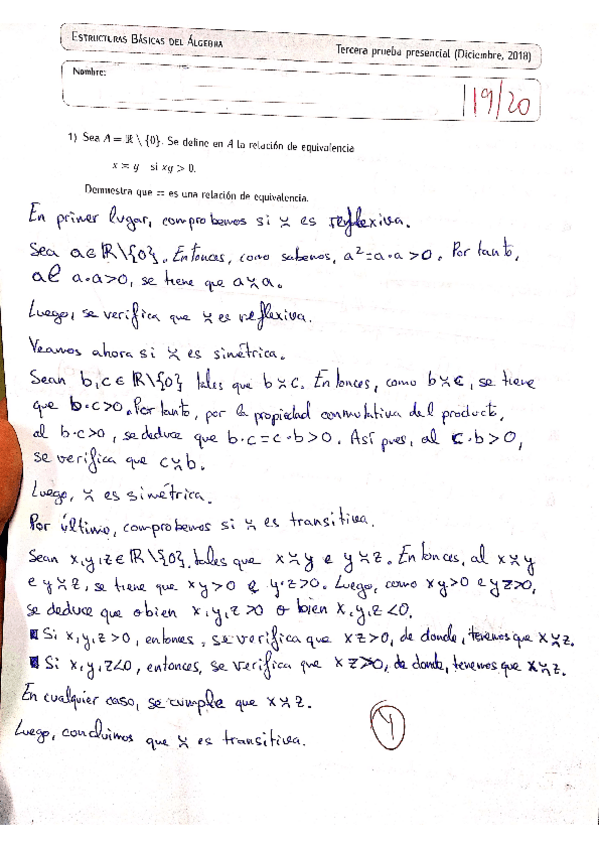 ESTRUCTURAS BÁSICAS DEL ÁLGEBRA
Tercera prueba presencial (Diciembre, 2018)
Nombre:
19/20
1) Sea A = ℝ \ {0}. Se define en A la relación de equivalencia
x ≍ y si xy > 0.
Demuestra que ≍ es una relación de equivalencia.
En primer lugar, comprobemos si ≍ es reflexiva.
Sea a∈ℝ\{0}. Entonces, como sabemos, a²=a·a>0. Por tanto,
al a·a>0, se tiene que a≍a.
Luego, se verifica que ≍ es reflexiva.
Veamos ahora si ≍ es simétrica.
Sean b,c∈ℝ\{0} tales que b≍c. Entonces, como b≍c, se tiene
que b·c>0. Por tanto, por la propiedad conmutativa del producto,
al b·c>0, se deduce que b·c=c·b>0. Así pues, al c·b>0,
se verifica que c≍b.
Luego, ≍ es simétrica.
Por último, comprobemos si ≍ es transitiva.
Sean x,y,z∈ℝ\{0}, tales que x≍y e y≍z. Entonces, al x≍y
e y≍z, se tiene que xy>0 e y·z>0. Luego, como xy>0 e yz>0,
se deduce que o bien x,y,z>0 o bien x,y,z<0.
■ Si x,y,z>0, entonces, se verifica que xz>0, de donde, tenemos que x≍z.
■ Si x,y,z<0, entonces, se verifica que xz>0, de donde, tenemos que x≍z.
En cualquier caso, se cumple que x≍z.
Luego, concluimos que ≍ es transitiva.
4